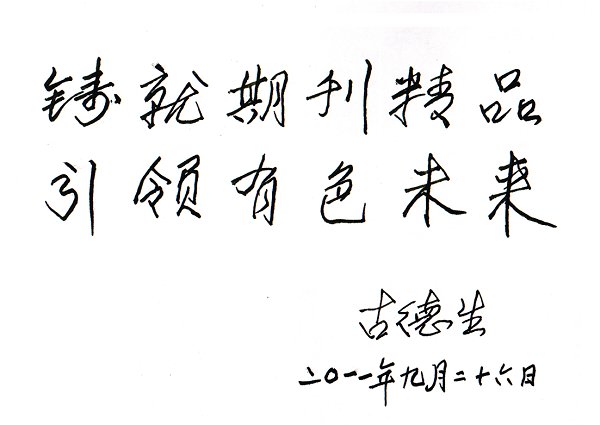 铸就期刊精品
引领有色未来
古德生
二〇一一年九月二十六日